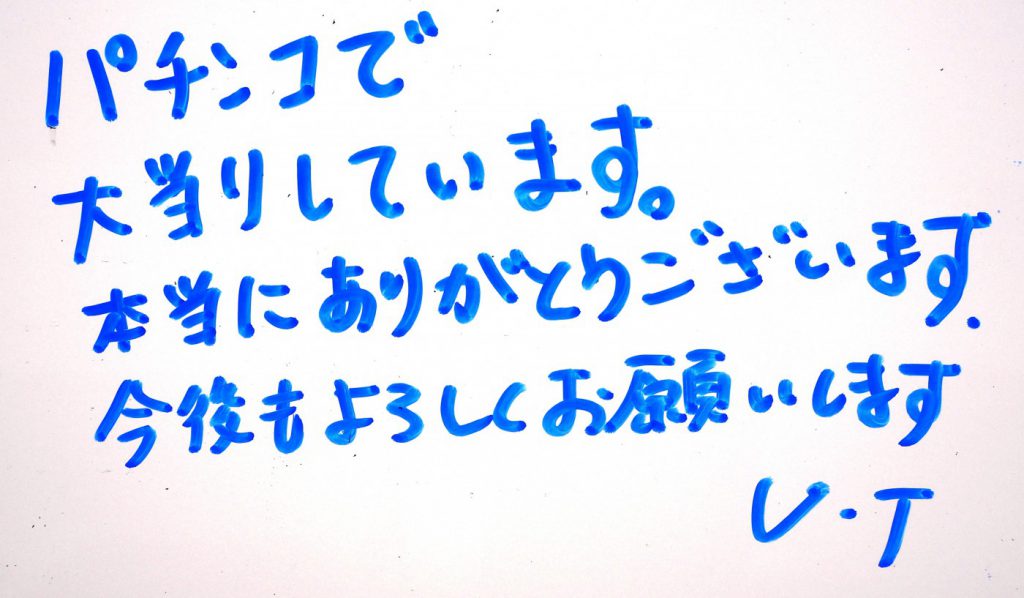 パチンコで
大当りしています。
本当にありがとうございます.
今後もよろしくお願いします
V・T